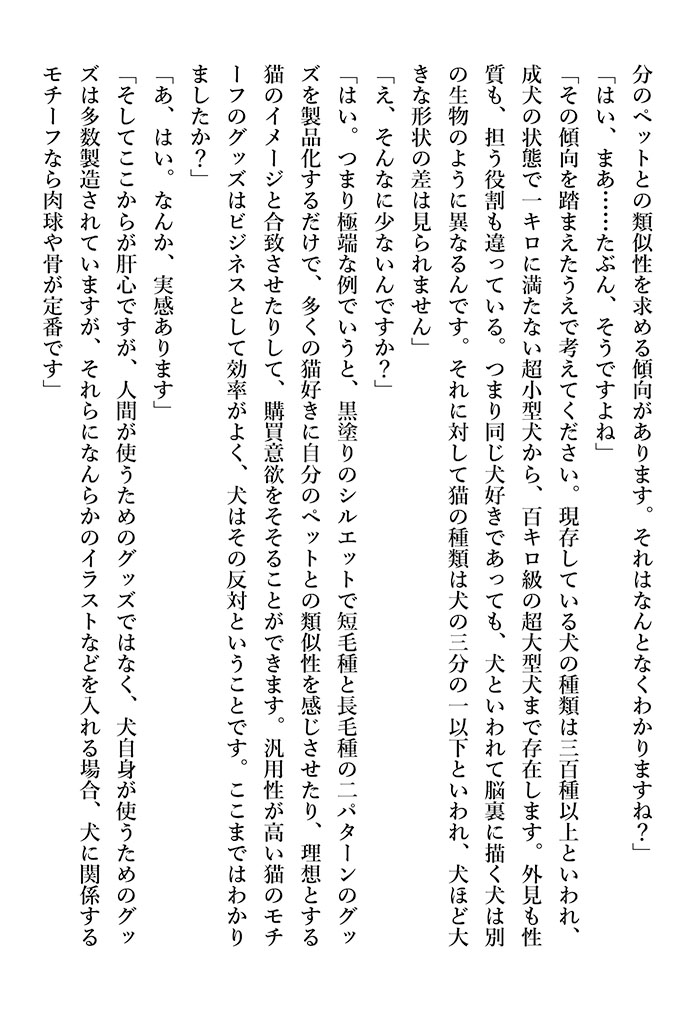 分のペットとの類似性を求める傾向があります。それはなんとなくわかりますね？」
「はい、まあ……たぶん、そうですよね」
「その傾向を踏まえたうえで考えてください。現存している犬の種類は三百種以上といわれ、
成犬の状態で一キロに満たない超小型犬から、百キロ級の超大型犬まで存在します。外見も性
質も、担う役割も違っている。つまり同じ犬好きであっても、犬といわれて脳裏に描く犬は別
の生物のように異なるんです。それに対して猫の種類は犬の三分の一以下といわれ、犬ほど大
きな形状の差は見られません」
「え、そんなに少ないんですか？」
「はい。つまり極端な例でいうと、黒塗りのシルエットで短毛種と長毛種の二パターンのグッ
ズを製品化するだけで、多くの猫好きに自分のペットとの類似性を感じさせたり、理想とする
猫のイメージと合致させたりして、購買意欲をそそることができます。汎用性が高い猫のモチ
ーフのグッズはビジネスとして効率がよく、犬はその反対ということです。ここまではわかり
ましたか？」
「あ、はい。なんか、実感あります」
「そしてここからが肝心ですが、人間が使うためのグッズではなく、犬自身が使うためのグッ
ズは多数製造されていますが、それらになんらかのイラストなどを入れる場合、犬に関係する
モチーフなら肉球や骨が定番です」